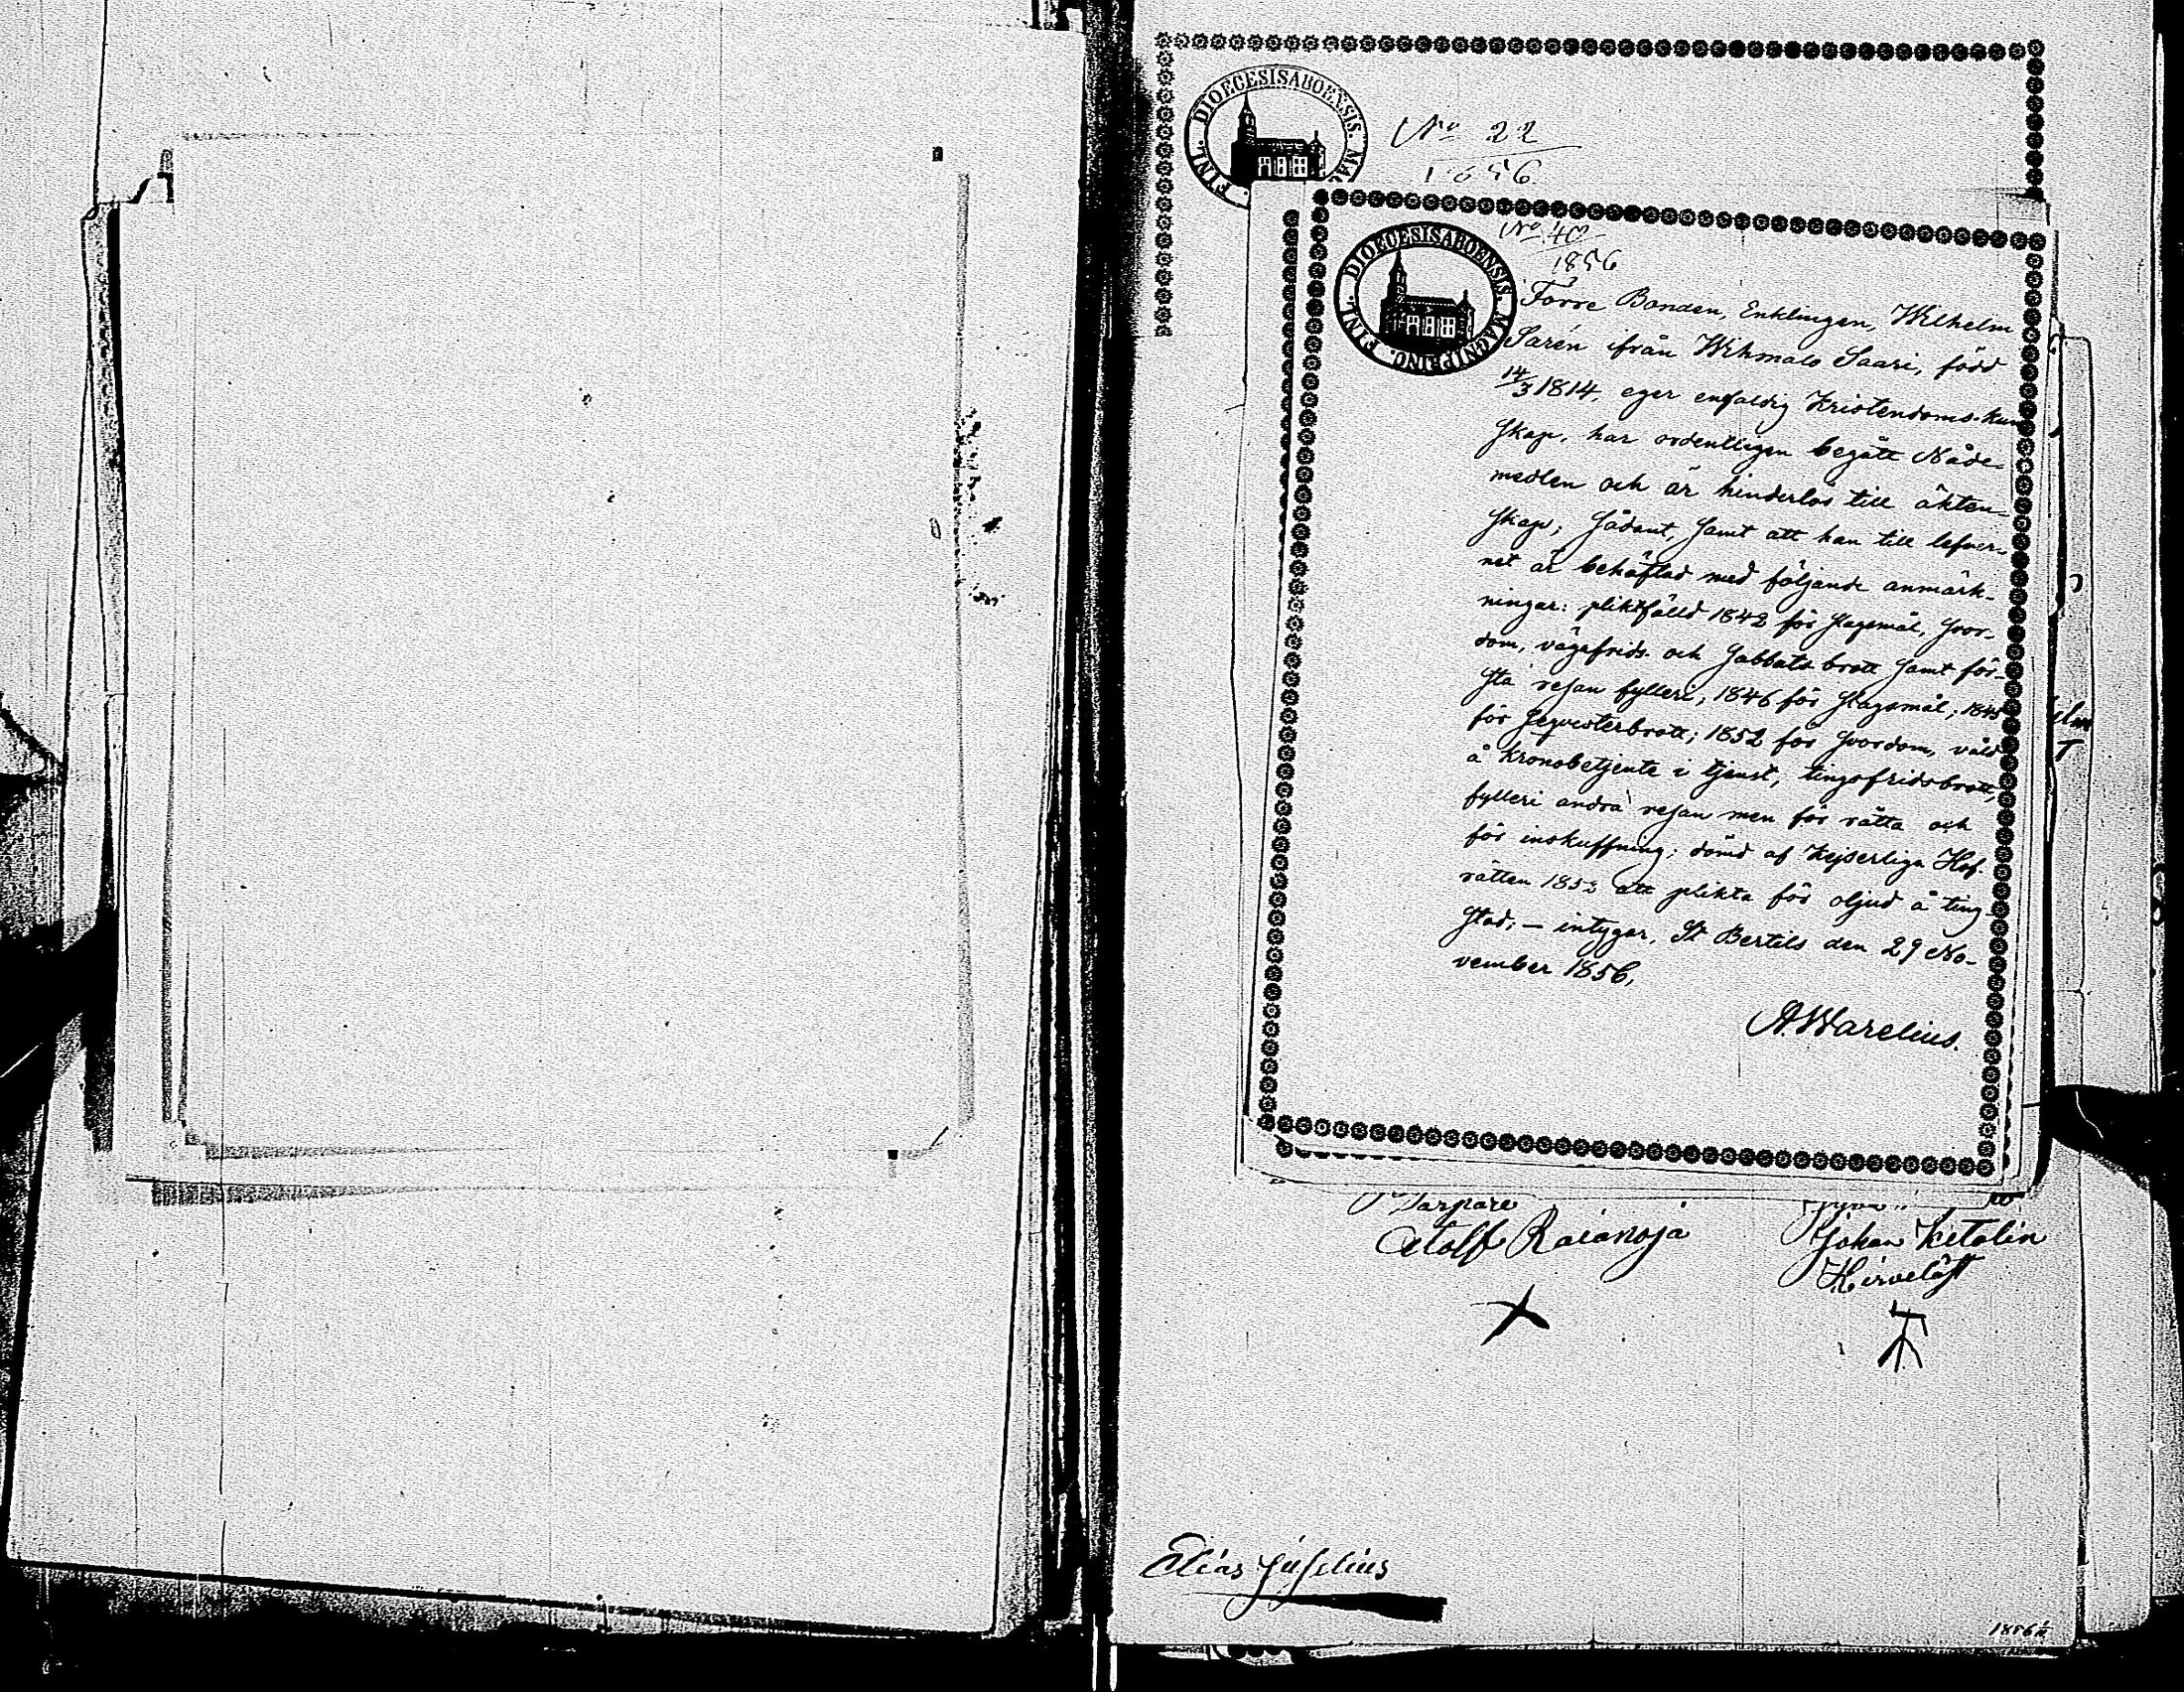 DIOECESIS ABOENSIS. MAG
FINL.
No 22
1856.
DIOECESIS ABOENSIS. MAGNI PRINC. FINL.
No 40
1856
Förre Bonden, Enklingen, Wilhelm
Sarén ifrån Wihmalo Saari, född
14/3 1814, eger enfaldig Kristendoms-kun
skap, har ordentligen begått Nåde-
medlen och är hinderlös till äkten-
skap; Sådant, samt att han till lefver-
net är behäftad med följande anmärk-
ningar: pliktfälld 1842 för slagsmål, svor-
dom, vägafrids- och Sabbats brott samt för-
sta resan fylleri; 1846 för slagsmål; 1845
för seqvesterbrott; 1852 för svordom, våld
å Kronobetjente i tjenst, tingsfridsbrott,
fylleri andra resan men för rätta och
för inskuffning; dömd af Kejserliga Hof-
rätten 1853 att plikta för oljud å ting-
stad; — intygar, St Bertils den 29 No-
vember 1856,
A. Warelius.
Johan Ketalin
Hirveläst
Elias Juselius